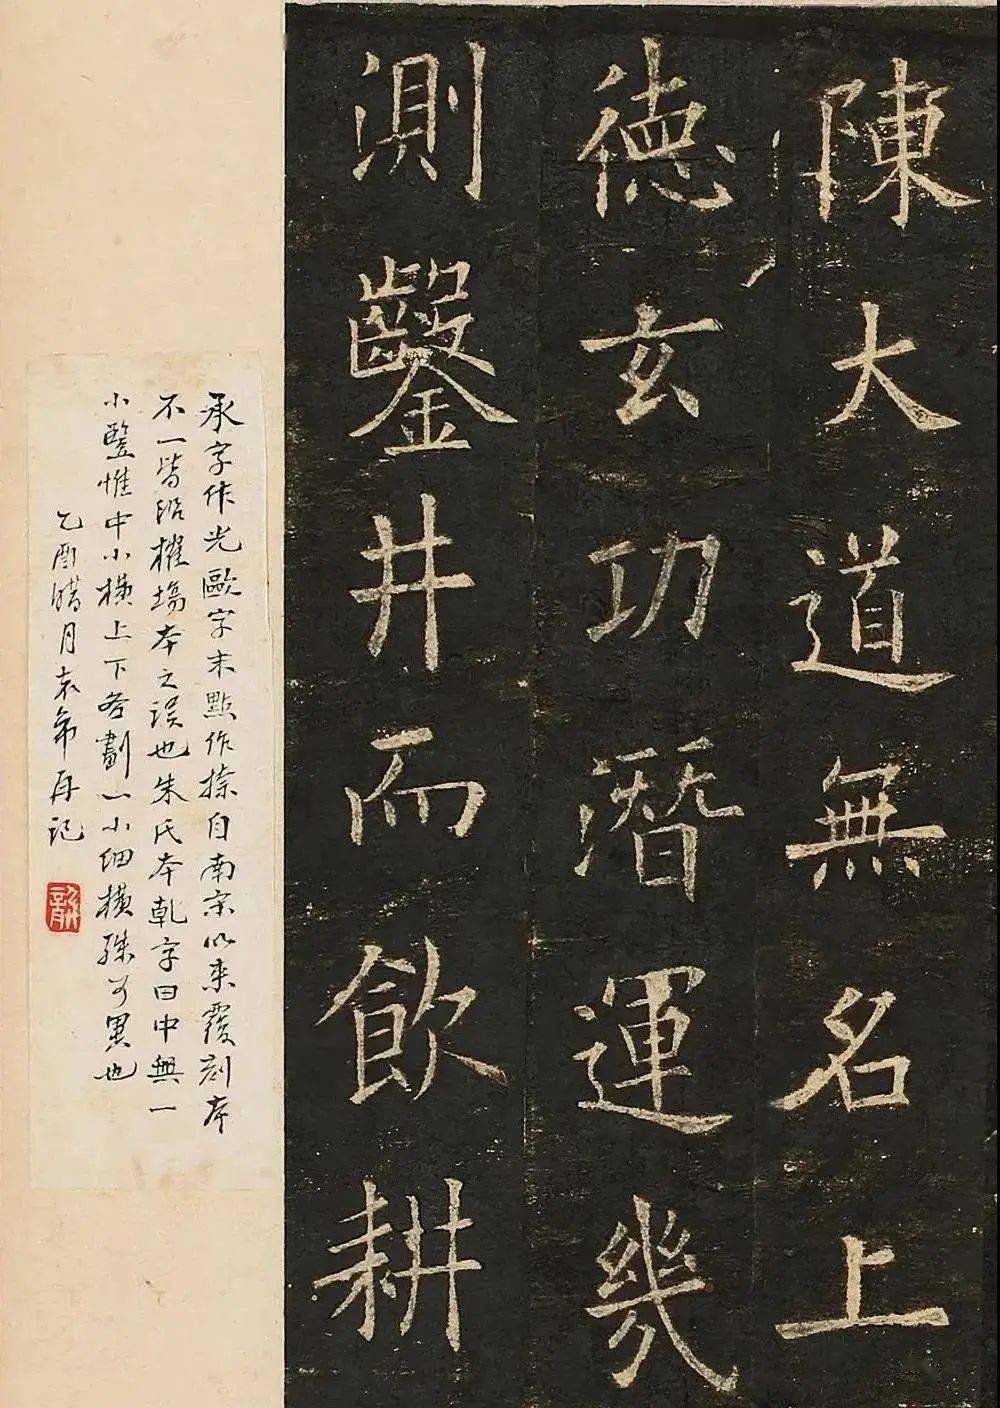 陳大道無名上
德玄功潛運幾
測鑿井而飲耕
承字作光歐字末點作捺自南宋以來覆刻本
不一皆沿榷場本之误也朱氏本乹字日中無一
小竪惟中小横上下各劃一小细横殊可異也
乙酉腊月袁帝再记